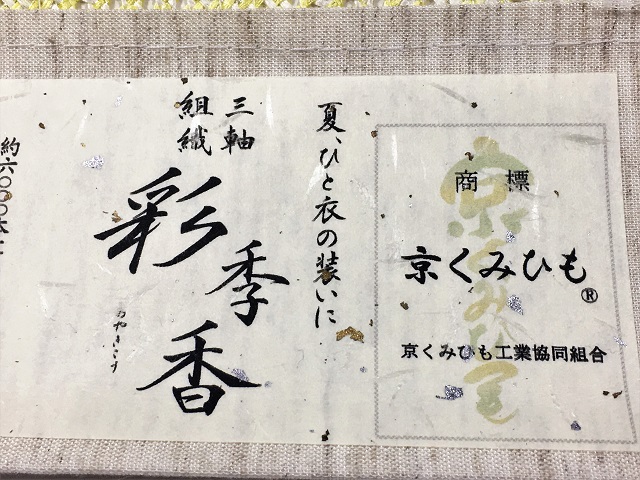 商標
京くみひも®
京くみひも工業協同組合
京くみひも
夏、ひと衣の装いに
三軸
組織
彩季香
あやきこう
約六〇〇〇本